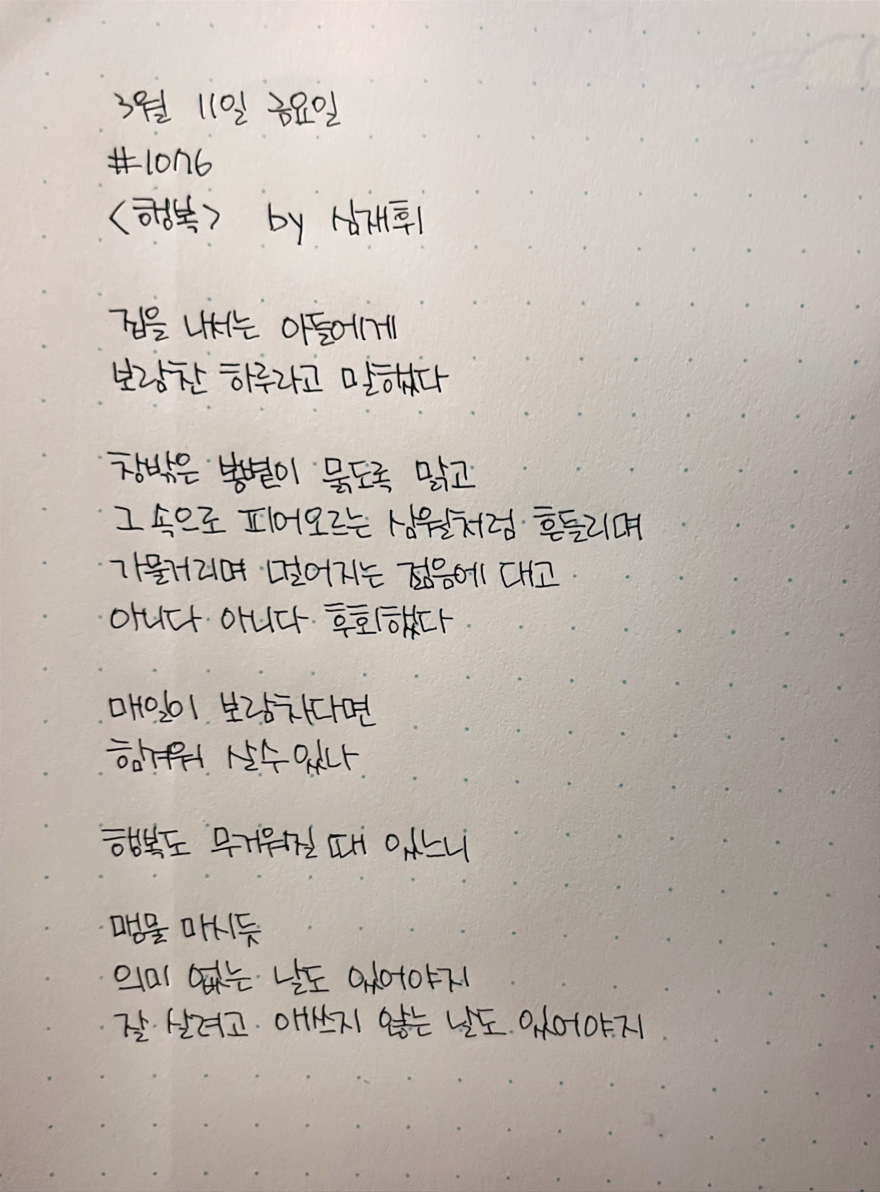 3월 11일 금요일
#1076
<행복> by 심재휘
집을 나서는 아들에게
보람찬 하루라고 말했다
창밖은 봄볕이 묽도록 맑고
그 속으로 피어오르는 삼월처럼 흔들리며
가물거리며 멀어지는 젊음에 대고
아니다 아니다 후회했다
매일이 보람차다면
힘겨워 살수있나
행복도 무거워질 때 있느니
맹물 마시듯
의미 없는 날도 있어야지
잘 살려고 애쓰지 않는 날도 있어야지